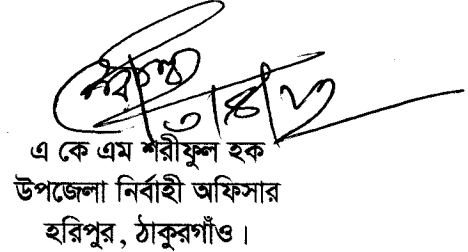 এ কে এম শরীফুল হক
উপজেলা নির্বাহী অফিসার
হরিপুর, ঠাকুরগাঁও।